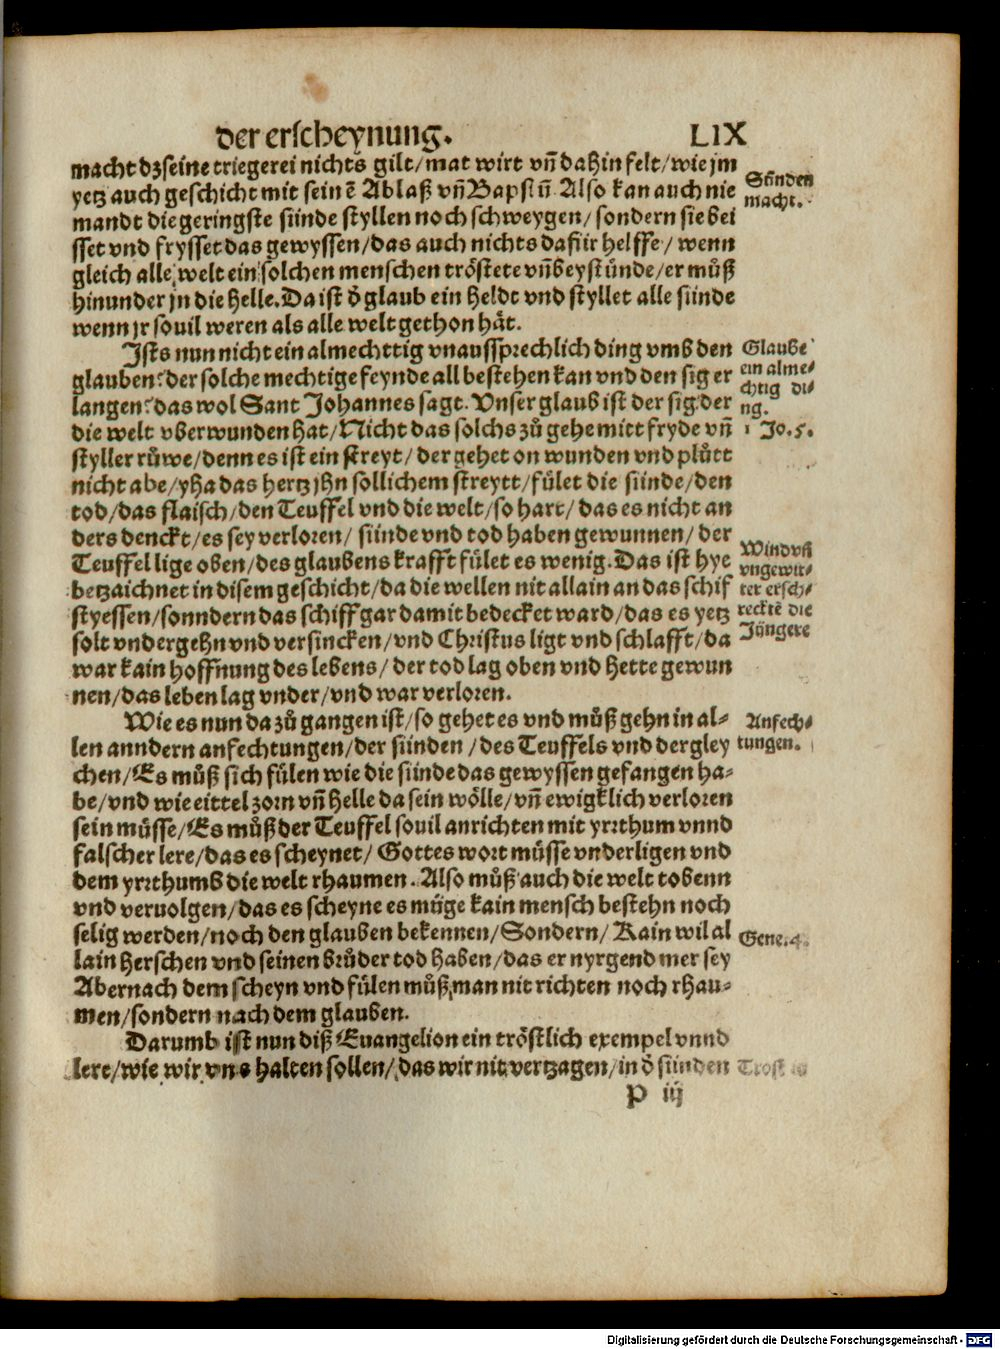 der erscheynung. LIX
macht dz seine triegerei nichts gilt/mat wirt vñ dahin felt/wie jm
yetz auch geschicht mit seinẽ Ablaß vñ Bapstũ Also kan auch nie
Sünden
macht.
mandt die geringste sünde styllen noch schweygen/sondern sie bei
sset vnd frysset das gewyssen/das auch nichts dafür helffe/wenn
gleich alle welt ein solchen menschen tröstete vñ beystünde/er můß
hinunder jn die helle. Da ist d̕ glaub ein heldt vnd styllet alle sünde
wenn jr souil weren als alle welt gethon hät.
Ists nun nicht ein almechttig vnaussprechlich ding vmb den
glauben? der solche mechtige feynde all bestehen kan vnd den sig er
langen? das wol Sant Johannes sagt. Vnser glaub ist der sig der
Glaube
ein alme-
chtig di-
ng.
die welt vberwunden hat/Nicht das solchs zů gehe mitt fryde vñ
1 Jo. 5.
styller růwe/denn es ist ein streyt/der gehet on wunden vnd plůtt
nicht abe/yha das hertz jhn sollichem streytt/fület die sünde/den
tod/das flaisch/den Teuffel vnd die welt/so hart/das es nicht an
ders denckt/es sey verloren/sünde vnd tod haben gewunnen/der
Teuffel lige oben/des glaubens krafft fület es wenig. Das ist hye
betzaichnet in disem geschicht/da die wellen nit allain an das schif
styessen/sonndern das schiff gar damit bedecket ward/das es yetz
solt vndergehn vnd versincken/vnd Christus ligt vnd schlafft/da
Wind vñ
vngewit-
ter ersch-
recktẽ die
Jüngere
war kain hoffnung des lebens/der tod lag oben vnd hette gewun
nen/das leben lag vnder/vnd war verloren.
Wie es nun da zů gangen ist/so gehet es vnd můß gehn in al-
len anndern anfechtungen/der sünden/des Teuffels vnd dergley
Anfech-
tungen.
chen/Es můß sich fülen wie die sünde das gewyssen gefangen ha-
be/vnd wie eittel zorn vñ helle da sein wölle/vñ ewigklich verloren
sein müsse/Es můß der Teuffel souil anrichten mit yrrthum vnnd
falscher lere/das es scheynet/Gottes wort müsse vnderligen vnd
dem yrrthumb die welt rhaumen. Also můß auch die welt tobenn
vnd veruolgen/das es scheyne es müge kain mensch bestehn noch
selig werden/noch den glauben bekennen/Sondern/Kain wil al
Gene. 4.
lain herschen vnd seinen brůder tod haben/das er nyrgend mer sey
Aber nach dem scheyn vnd fülen můß man nit richten noch rhau-
men/sondern nach dem glauben.
Darumb ist nun diß Euangelion ein tröstlich exempel vnnd
lere/wie wir vns halten sollen/das wir nit vertzagen/in d̕ sünden
Trost
P iij
Digitalisierung gefördert durch die Deutsche Forschungsgemeinschaft - DFG